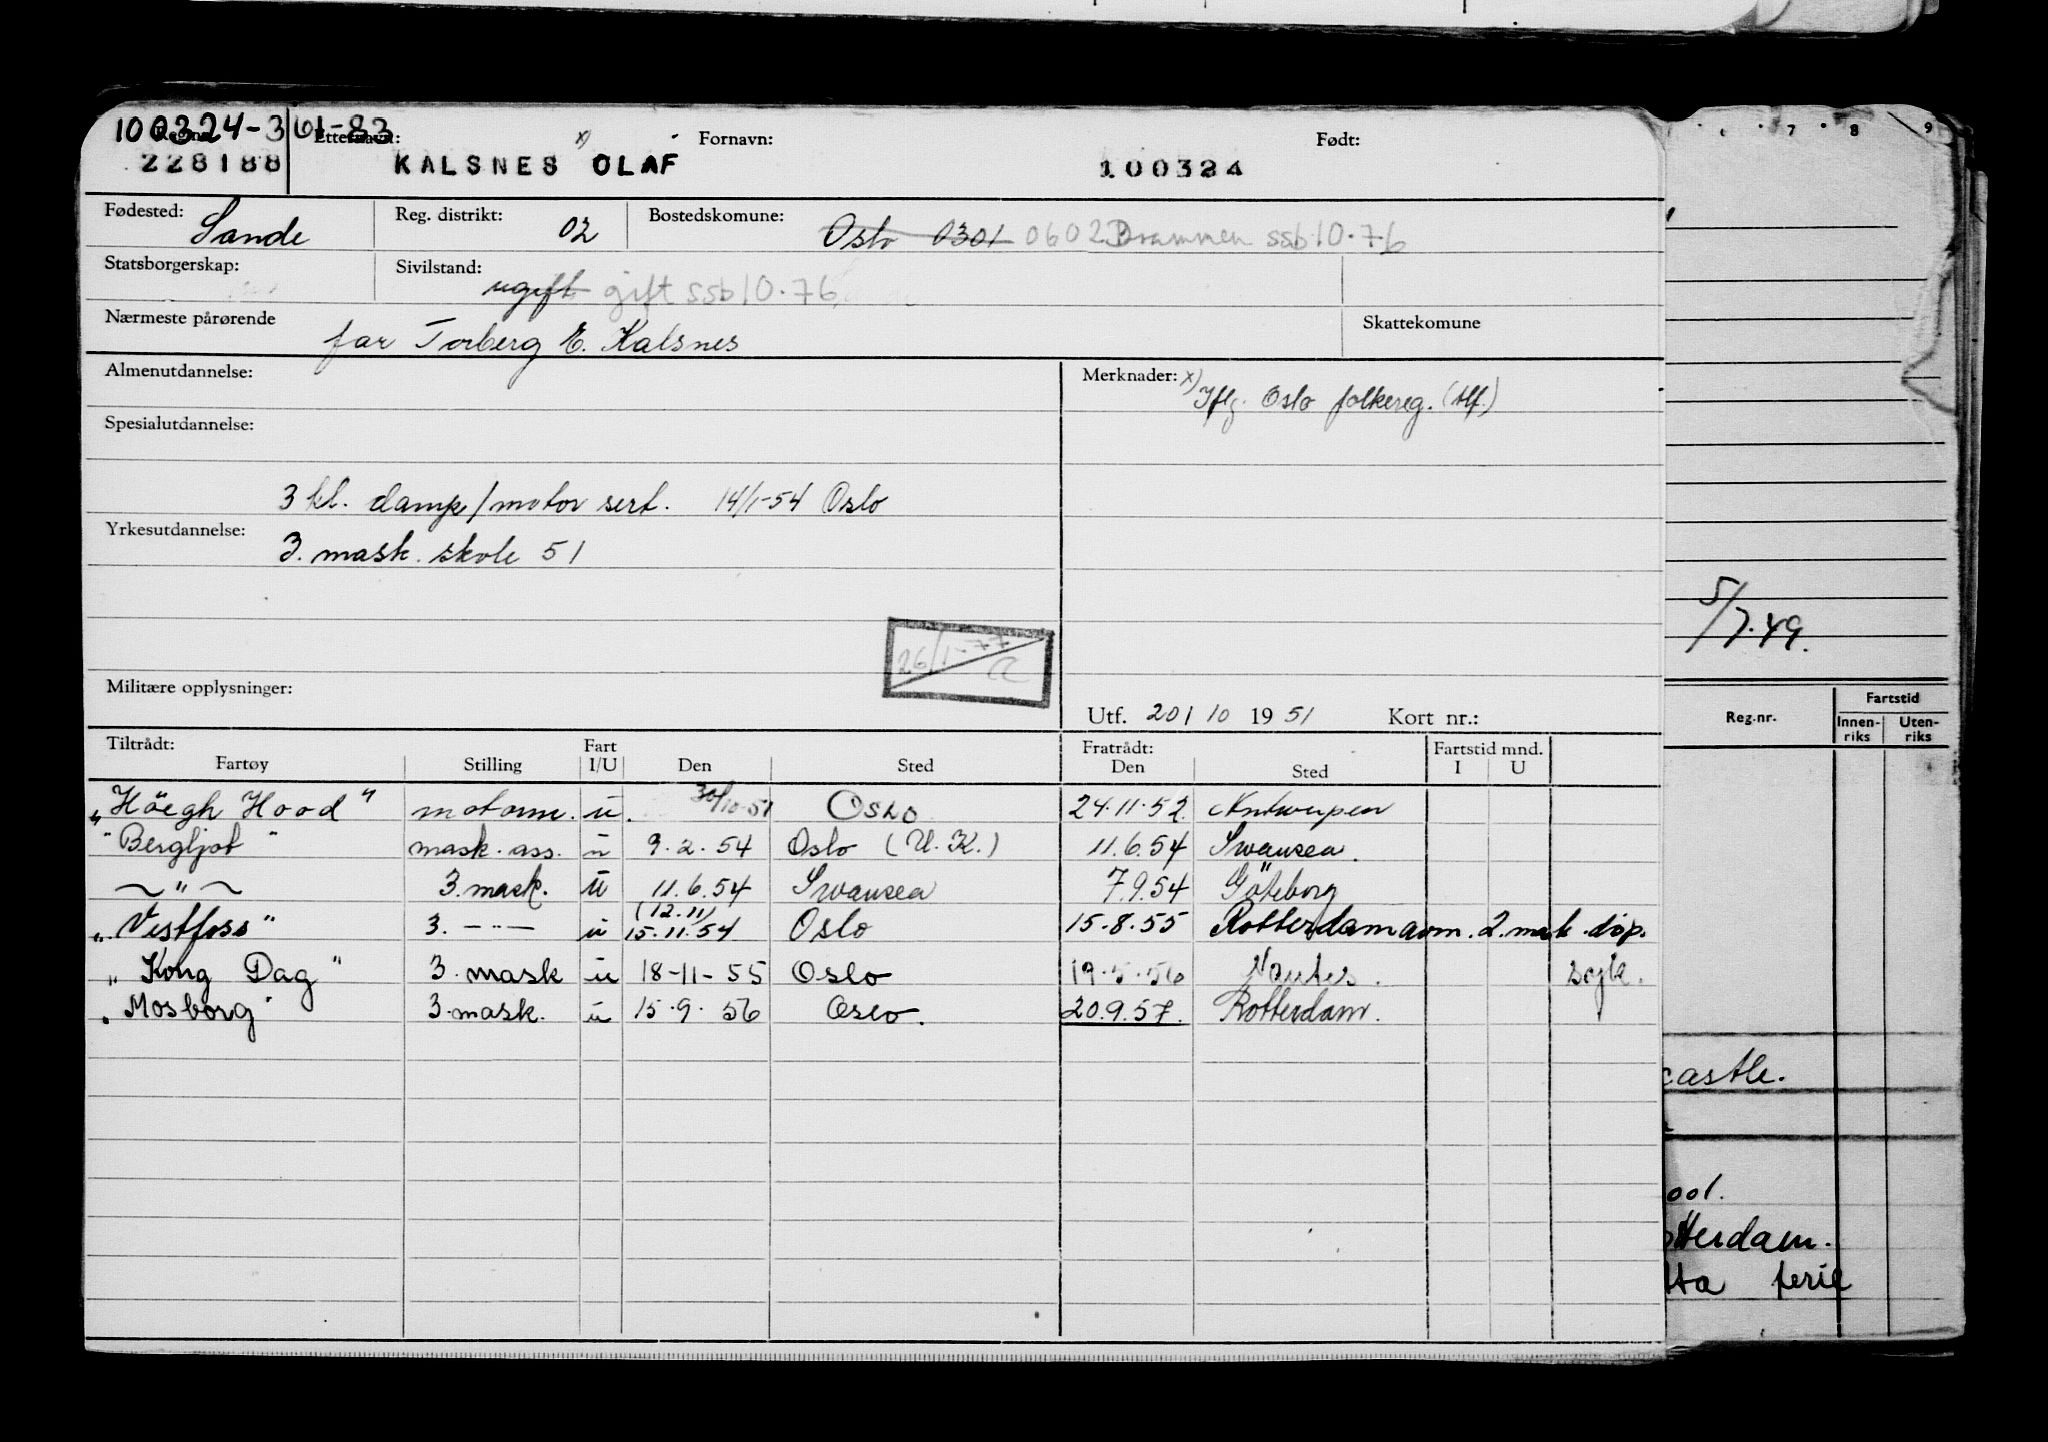 100324-361-83
Reg.nr. Etternavn: x) Fornavn: Født:
228188 KALSNES OLAF 100324
Fødested: Sande Reg. distrikt: 02 Bostedskomune: Oslo 0301 0602 Drammen ssb 10.76
Statsborgerskap: Sivilstand: ugift gift ssb 10.76
Nærmeste pårørende far Torberg E. Kalsnes Skattekomune
Almenutdannelse: Merknader: x) Iflg. Oslo folkereg. (Alf.)
Spesialutdannelse:
3 kl. damp/motor sert. 14/1-54 Oslo
Yrkesutdannelse: 3. mask. skole 51
26/1-77
Militære opplysninger: Utf. 20/10 1951 Kort nr.:
Tiltrådt: Fart Fratrådt: Fartstid mnd.
Fartøy Stilling I/U Den Sted Den Sted I U
"Höegh Hood" motorm. u. 30/10-51 Oslo 24.11.52 Antwerpen
"Bergljot" mask. ass. u 9.2.54 Oslo (U.K.) 11.6.54 Swansea.
—"— 3. mask. u 11.6.54 Swansea 7.9.54 Göteborg
(12.11)
"Vestfoss" 3. -"- u 15.11.54 Oslo 15.8.55 Rotterdam avm. 2. mask. disp.
"Kong Dag" 3. mask u 18-11-55 Oslo 19.5.56 Nantes. syk.
"Mosborg" 3. mask. u 15.9.56 Oslo. 20.9.57. Rotterdam.
7 8 9
5/7.49.
Reg.nr. Fartstid
Innen-riks Uten-riks
castle.
ool.
otterdam.
tta ferie